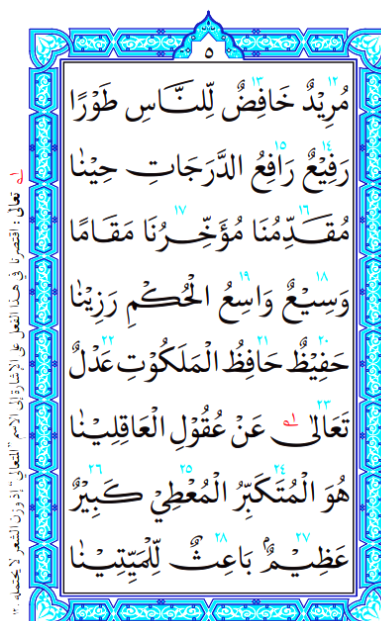 ٥
مُرِيْدٌ خَافِضٌ لِّلنَّاسِ طَوْرًا
١٢ ١٣
رَفِيْعٌ رَافِعُ الدَّرَجَاتِ حِيْنَا
١٤ ١٥
مُقَدِّمُنَا مُؤَخِّرُنَا مَقَامًا
١٦ ١٧
وَسِيْعٌ وَاسِعُ الْحُكْمِ رَزِيْنَا
١٨ ١٩
حَفِيْظٌ حَافِظُ الْمَلَكُوْتِ عَدْلٌ
٢٠ ٢١ ٢٢
تَعَالٰى عَنْ عُقُوْلِ الْعَاقِلِيْنَا
٢٣
هُوَ الْمُتَكَبِّرُ الْمُعْطِيْ كَبِيْرٌ
٢٤ ٢٥ ٢٦
عَظِيْمٌ بَاعِثٌ لِّلْمَيِّتِيْنَا
٢٧ ٢٨
تعالى : اقتصرنا في هذا الفعل على الإشارة إلى الاسم "المتعالي" إذ وزن الشعر لا يحتمله ١٢٠